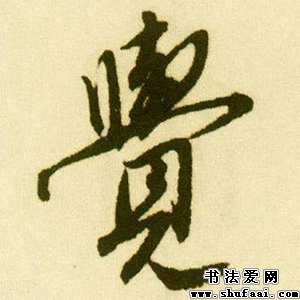 覺
书法爱网
www.shufaai.com